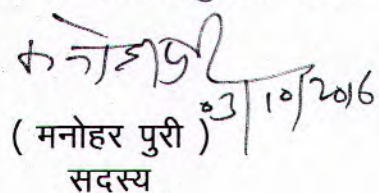 03/10/2016
( मनोहर पुरी )
सदस्य